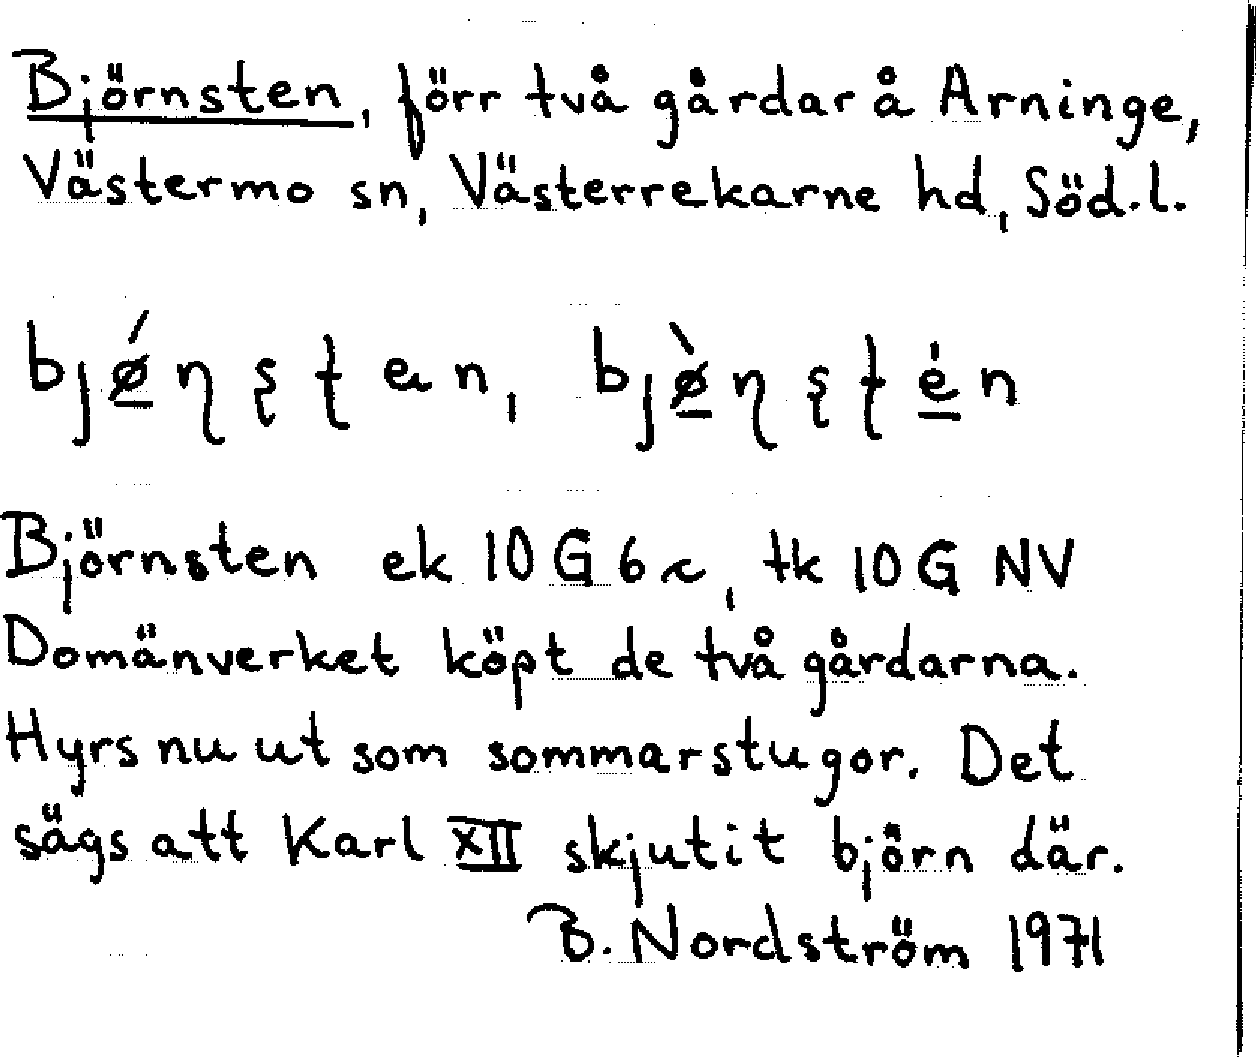 Björnsten, förr två gårdar å Arninge,
Västermo sn, Västerrekarne hd, Söd.l.
bjǿɳʂʈan, bjø̀ɳʂʈėn
Björnsten ek 10 G 6c, tk 10 G NV
Domänverket köpt de två gårdarna.
Hyrs nu ut som sommarstugor. Det
sägs att Karl XII skjutit björn där.
B. Nordström 1971